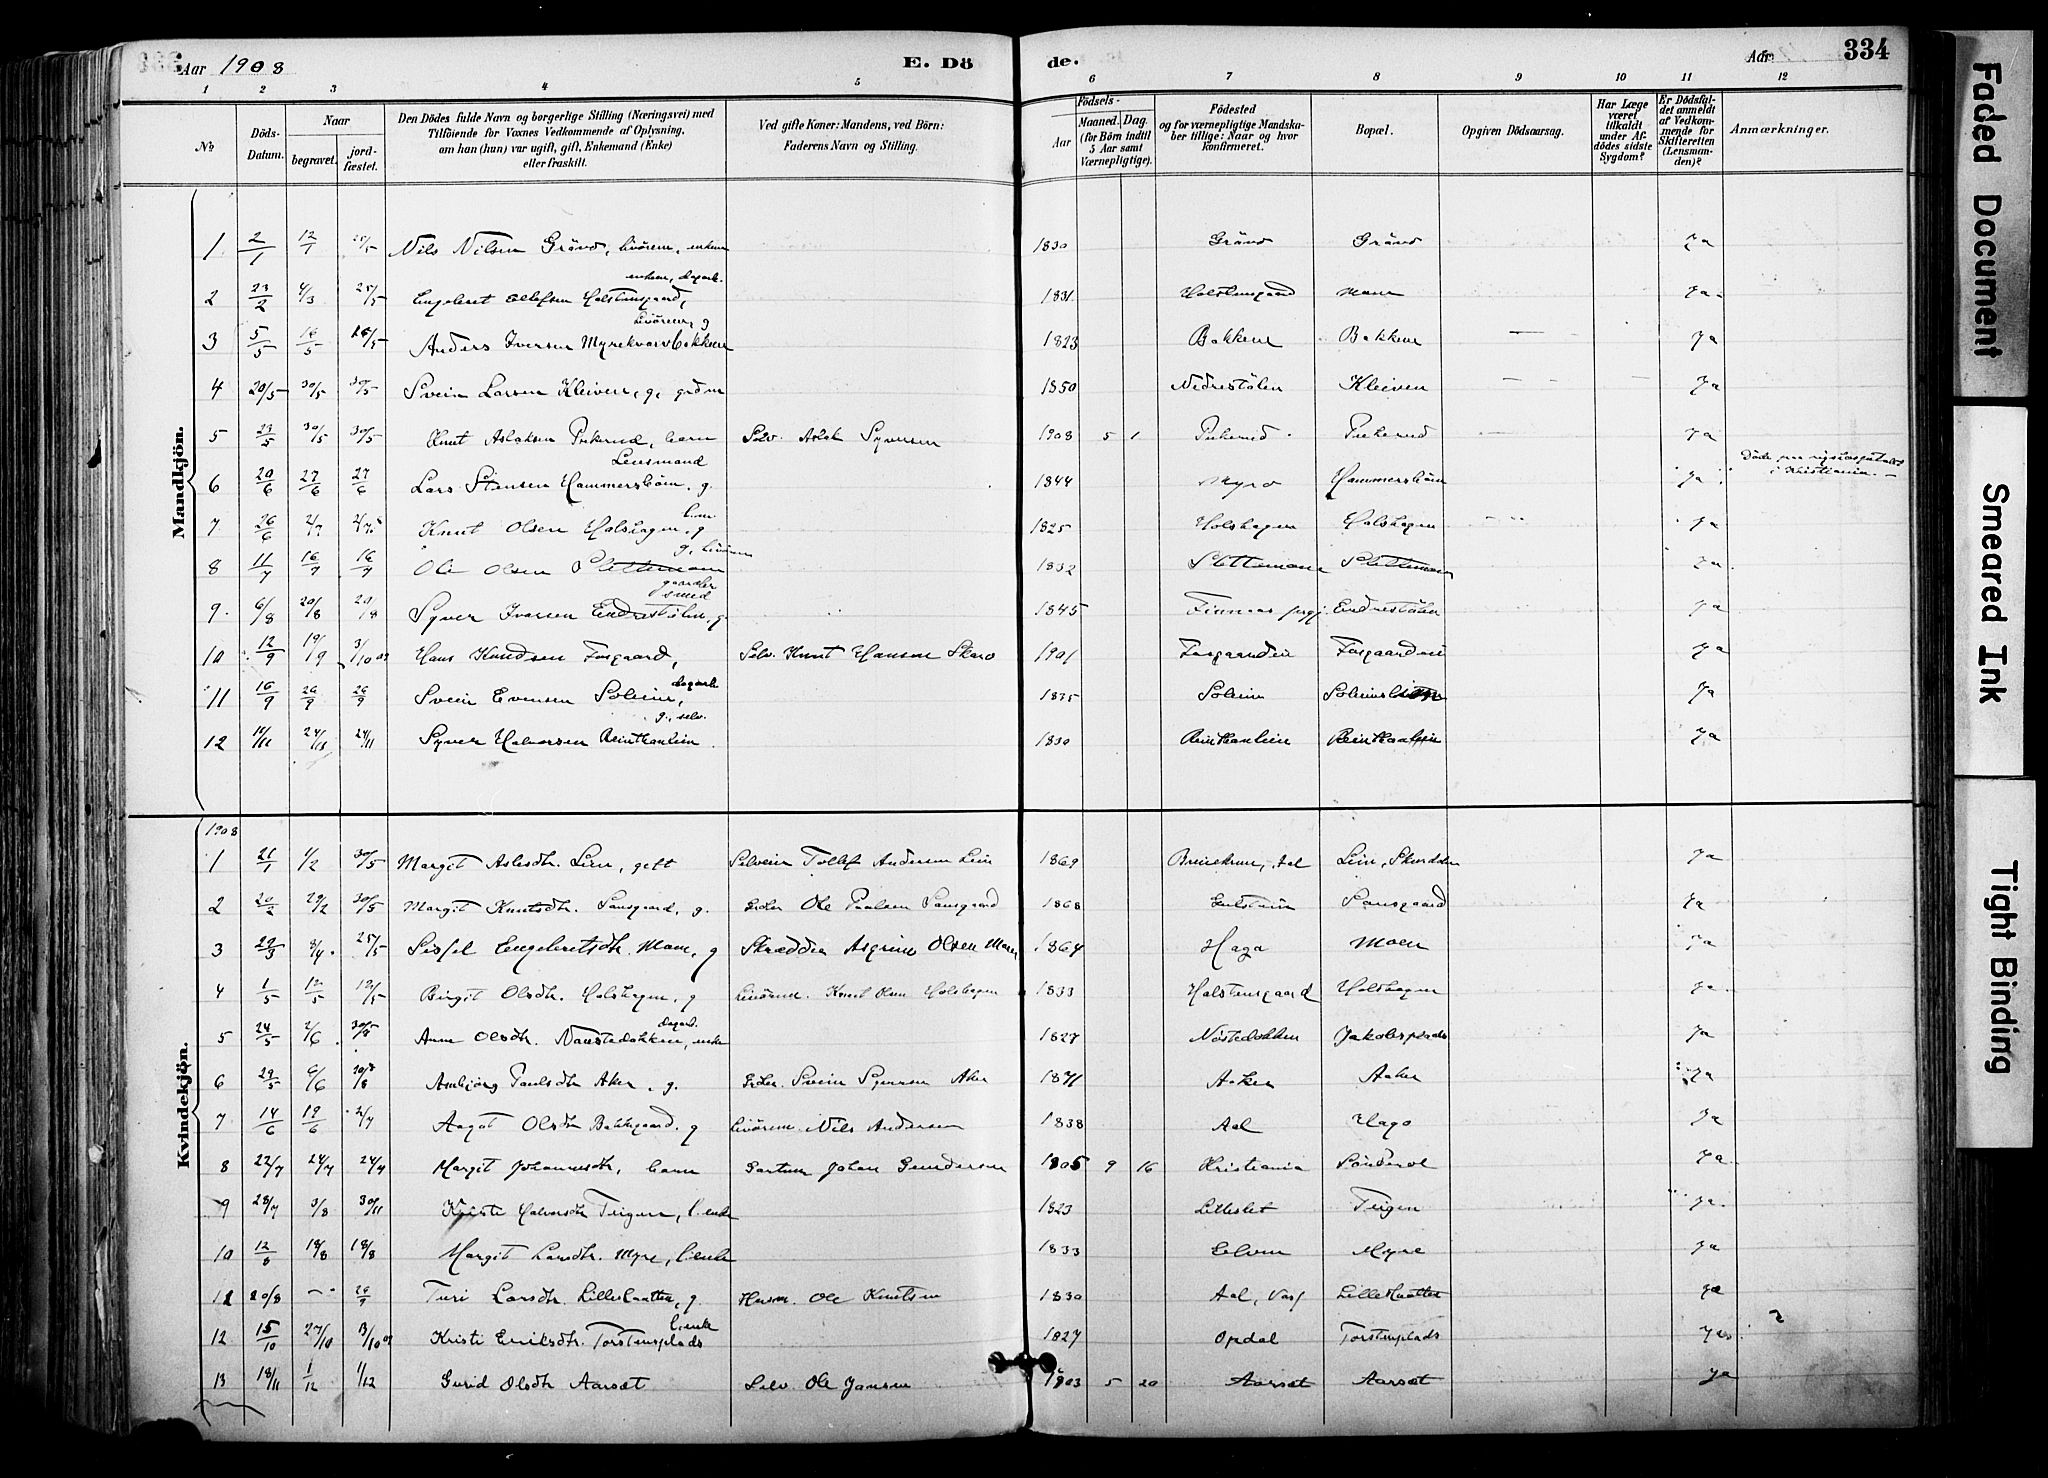 Aar 1908
E. Döde.
Aar
334
1 2 3 4 5 6 7 8 9 10 11 12
No
Döds-Datum.
Naar
begravet.
jordfæstet.
Den Dödes fulde Navn og borgerlige Stilling (Næringsvei) med
Tilföiende for Voxnes Vedkommende af Oplysning,
om han (hun) var ugift, gift, Enkemand (Enke)
eller fraskilt.
Ved gifte Koner: Mandens, ved Börn:
Faderens Navn og Stilling.
Födsels-
Aar
Maaned. Dag.
(for Börn indtil
5 Aar samt
Værnepligtige).
Födested
og for værnepligtige Mandska-
ber tillige: Naar og hvor
konfirmeret.
Bopæl.
Opgiven Dödsaarsag.
Har Læge
været
tilkaldt
under Af-
dödes sidste
Sygdom?
Er Dödsfal-
det anmeldt
af Vedkom-
mende for
Skifteretten
(Lensman-
den)?
Anmærkninger.
Mandkjön.
1 2/1 12/1 25/5 Nils Nilsen Gränd, livörem, enkem 1830 Gränd Gränd Ja
2 23/2 4/3 25/5 Engebret Ellefsen Holstensgaard, enkem, dagarb. 1831 Holstensgaard Moen Ja
3 5/5 16/5 16/5 Anders Iversen Myrekvarvbakken Livörem, g 1823 Bakkene Bakkene — Ja
4 20/5 30/5 30/5 Svein Larsen Kleiven, g, grdm 1850 Nedrestölen Kleiven — — — Ja
5 23/5 30/5 30/5 Knut Aslaksen Pukerud, barn Selv. Aslak Syversen 1908 5 1 Pukerud Pukerud — Ja
6 20/6 27/6 27/6 Lars Stensen Hammersböm, g. Lensmand 1844 Myro Hammersböm Ja Döde paa rigshospitalet i Kristiania. —
7 26/6 2/7 2/7 Knut Olsen Holshagen, g 1825 Holshagen Holshagen Ja
8 11/7 16/7 16/7 Ole Olsen Slettemoen g, livörem 1832 Slettemoen Slettemoen Ja
9. 6/8 20/8 20/8 Syver Iversen Endrestölen, g. smed 1845 Endrestölen Ja
10 12/9 19/9 3/10 09 Hans Knudsen Fosgaard, Selv. Knut Hansen Skaro 1901 Fosgaardeie Fosgaardeie Ja
11 16/9 26/9 26/9 Svein Evensen Soleim, dagarb 1835 Soleim Ja
12 24/11 Syver Halvorsen Reinthanlien g., selv. 1830 Reinthanlien Reinthanlien Ja
Kvindekjön.
1908
1 21/1 1/2 30/5 Margit Aslesdtr. Lien, gift Selveier Tollef Andersen Lien 1869 Aal Lien, Skurdalen Ja
2 20/2 29/2 30/5 Margit Knutsdtr. Sansgaard, g. Ole Paulsen Sansgaard 1868 Sansgaard Ja
3 29/3 8/4 25/5 Sissel Engebretsdtr. Moen, g Skrædder Asgrim Olsen Moen 1864 Haga Moen Ja
4 1/5 12/5 12/5 Birgit Olsdtr. Holshagen, g Livörem. Knut Olsen Holshagen 1833 Holstensgaard Holshagen Ja
5 24/5 2/6 30/8 Anne Olsdtr. Naustedokken, enke dagarb. 1827 Nöstedokken Jakobsplads Ja
6 29/5 6/6 Ambjörg Paulsdtr Aker, g. Svein Syversen Aker 1871 Aaker Aaker Ja
7 14/6 19/6 2/7 Aagot Olsdtr Bakkegaard, g Livörem. Nils Andersen 1838 Aal Hago Ja
8 22/7 24/7 24/7 Margit Johannsdtr, barn Gartner Johan Gundersen 1905 9 16 Kristiania Sönderol Ja
9 28/7 3/8 30/11 Kristi Halvorsdtr Teigen, l. enke 1823 Lilleslet Teigen Ja
10 12/8 18/8 18/8 Margit Larsdtr. Myre, l. enke 1833 Elven Myre Ja
11 20/8 — 26/9 Turi Larsdtr. Lilleslaatten, g. Husm. Ole Knutsen 1830 Aal Lilleslaatten Ja
12 15/10 27/10 3/10 09 Kristi Eriksdtr. Torstensplads l. enke 1827 Opdal Torstensplads Ja
13 18/11 1/12 1/12 Gurid Olsdtr Aarset Selv. Ole Jansen 1903 5 20 Aarset Aarset Ja
Faded Document
Smeared Ink
Tight Binding